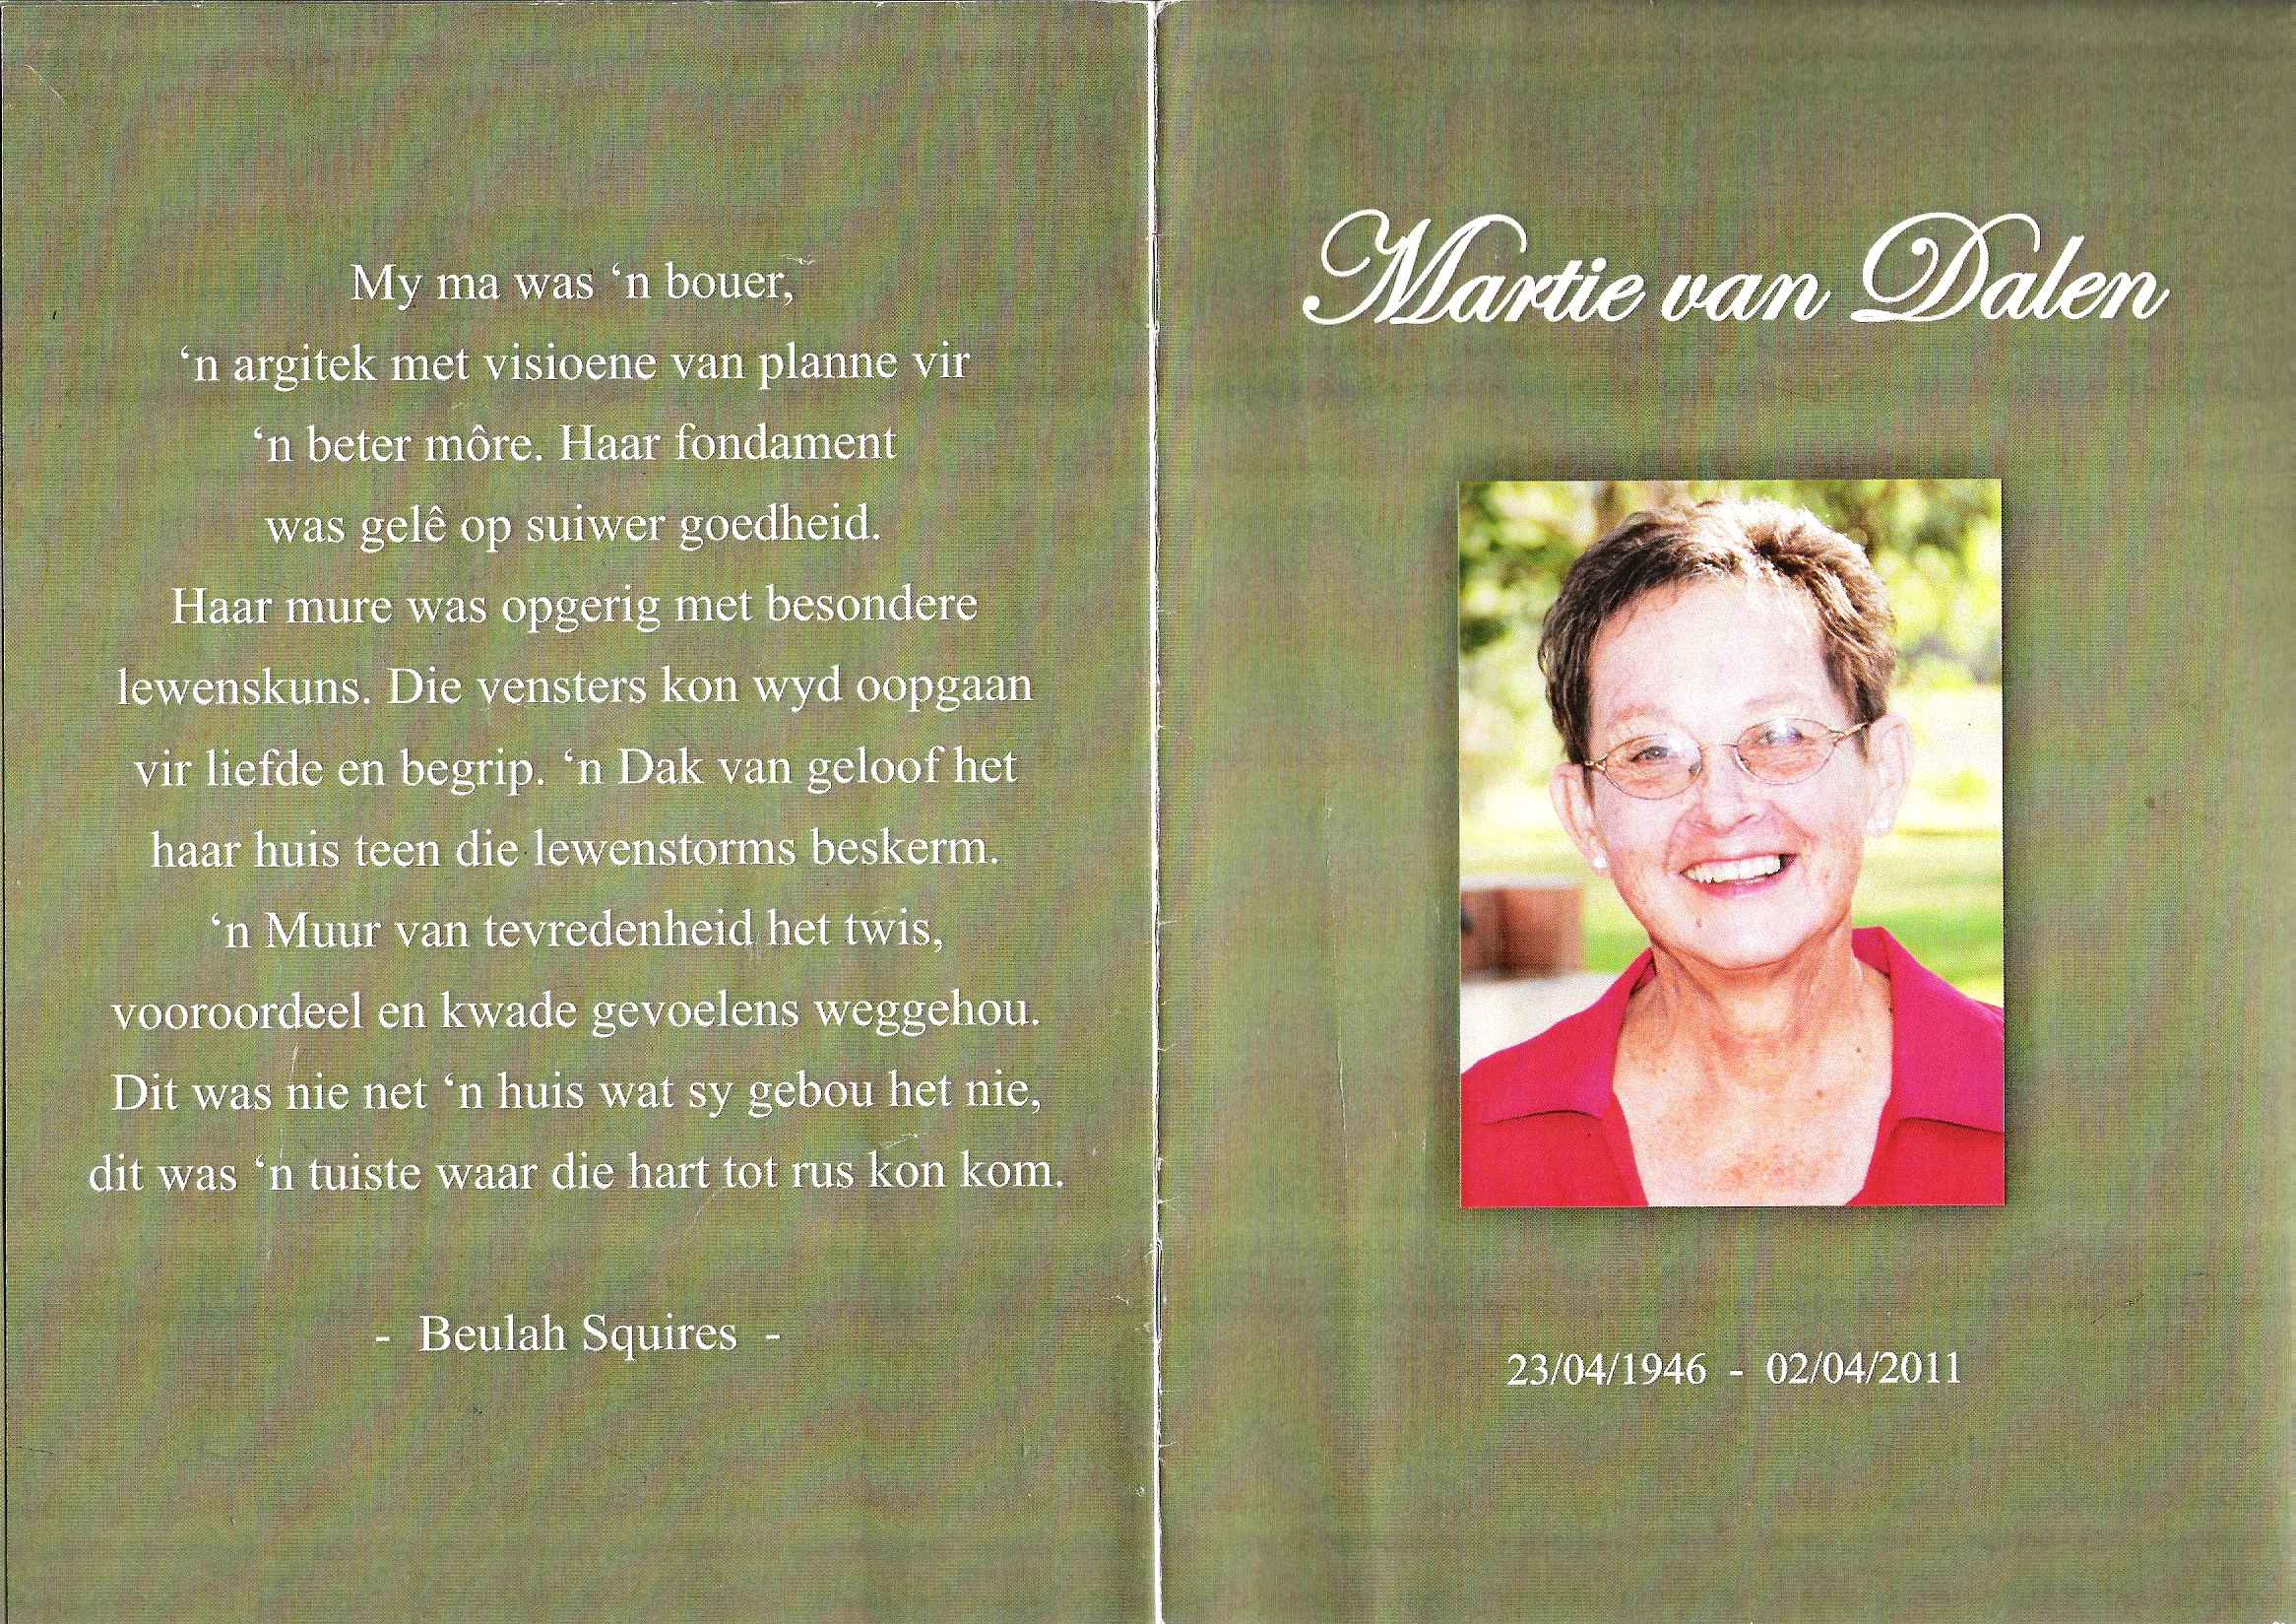 My ma was ‘n bouer,
‘n argitek met visioene van planne vir
‘n beter môre. Haar fondament
was gelê op suiwer goedheid.
Haar mure was opgerig met besondere
lewenskuns. Die vensters kon wyd oopgaan
vir liefde en begrip. ‘n Dak van geloof het
haar huis teen die lewenstorms beskerm.
‘n Muur van tevredenheid het twis,
vooroordeel en kwade gevoelens weggehou.
Dit was nie net ‘n huis wat sy gebou het nie,
dit was ‘n tuiste waar die hart tot rus kon kom.
- Beulah Squires -
Martie van Dalen
23/04/1946 - 02/04/2011